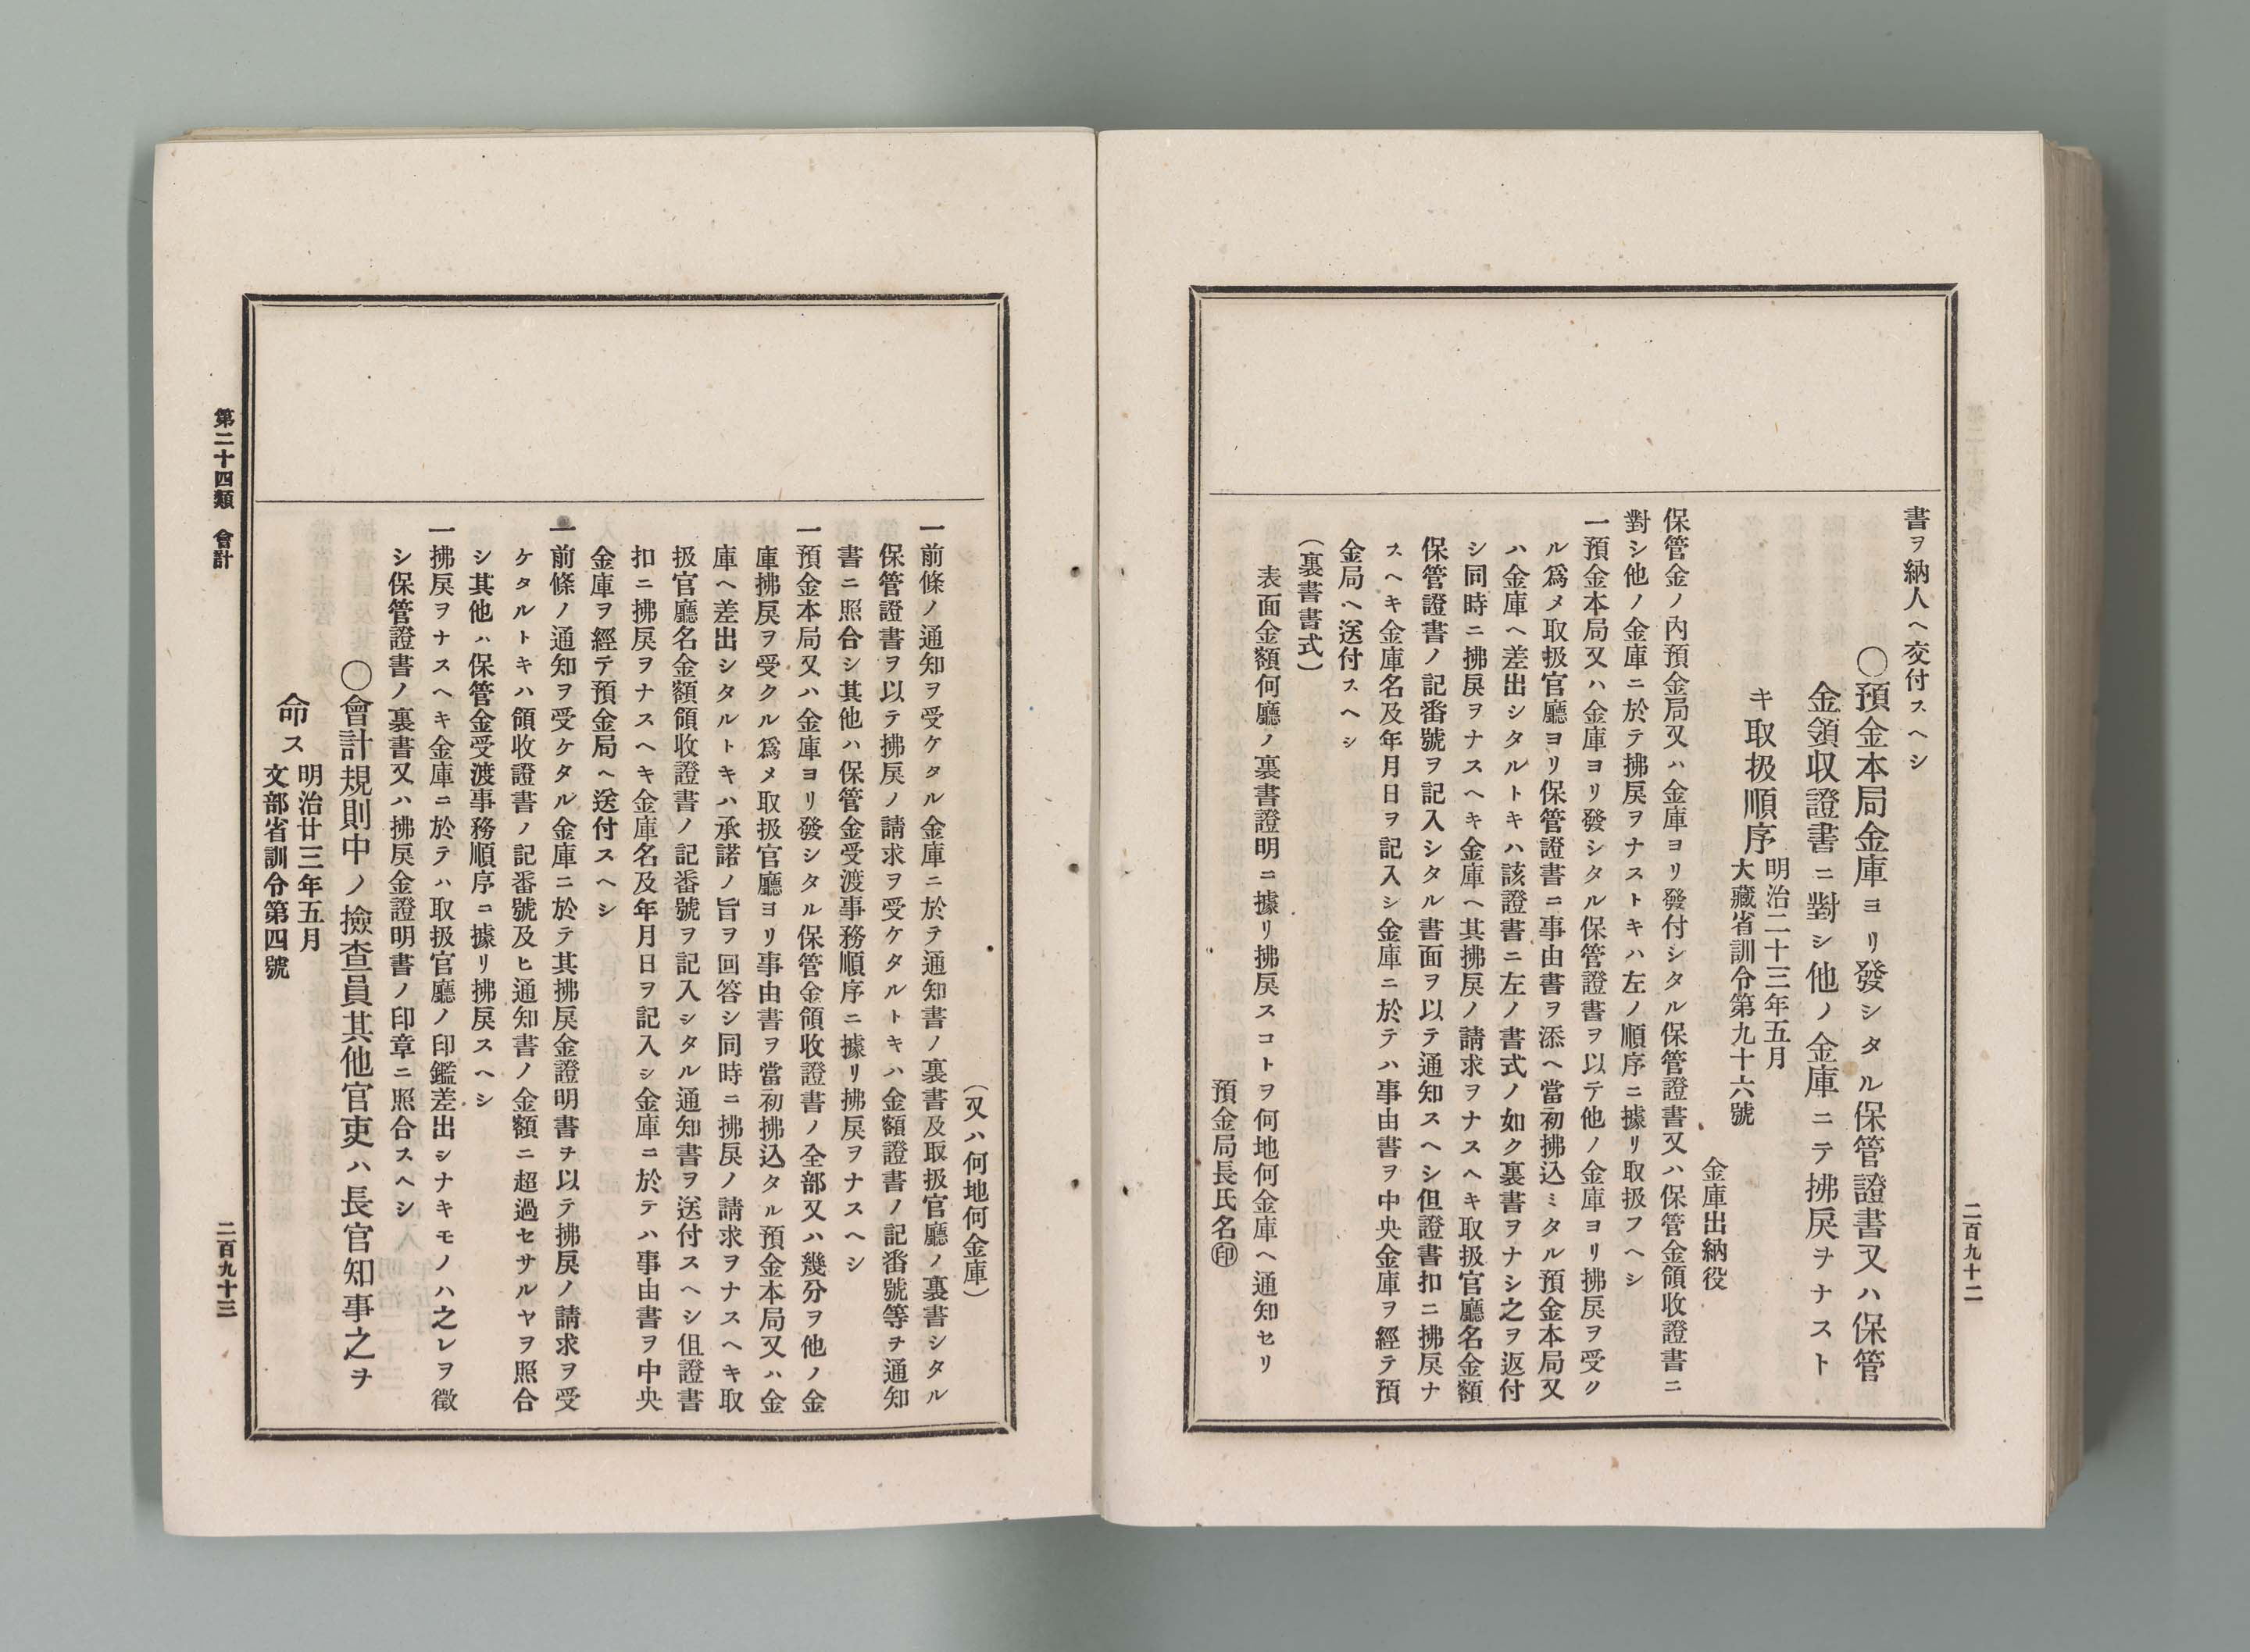 書ヲ納人ヘ交付スヘシ
〇預金本局金庫ヨリ發シタル保管證書又ハ保管
金領収證書ニ對シ他ノ金庫ニテ拂戾ヲナスト
キ取扱順序
明治二十三年五月
大藏省訓令第九十六號
金庫出納役
保管金ノ內預金局又ハ金庫ヨリ發付シタル保管證書又ハ保管金領收證書ニ
對シ他ノ金庫ニ於テ拂戾ヲナストキハ左ノ順序ニ據リ取扱フヘシ
一預金本局又ハ金庫ヨリ發シタル保管證書ヲ以テ他ノ金庫ヨリ拂戾ヲ受ク
ル爲メ取扱官廳ヨリ保管證書ニ事由書ヲ添ヘ當初拂込ミタル預金本局又
ハ金庫ヘ差出シタルトキハ該證書ニ左ノ書式ノ如ク裏書ヲナシ之ヲ返付
シ同時ニ拂戾ヲナスヘキ金庫ヘ其拂戾ノ請求ヲナスヘキ取扱官廳名金額
保管證書ノ記番號ヲ記入シタル書面ヲ以テ通知スヘシ但證書扣ニ拂戾ナ
スヘキ金庫名及年月日ヲ記入シ金庫ニ於テハ事由書ヲ中央金庫ヲ經テ預
金局ヘ送付スヘシ
(裏書書式)
表面金額何廳ノ裏書證明ニ據リ拂戾スコトヲ何地何金庫ヘ通知セリ
預金局長氏名㊞
二百九十二
(又ハ何地何金庫)
一前條ノ通知ヲ受ケタル金庫ニ於テ通知書ノ裏書及取扱官廳ノ裏書シタル
保管證書ヲ以テ拂戾ノ請求ヲ受ケタルトキハ金額證書ノ記番號等ヲ通知
書ニ照合シ其他ハ保管金受渡事務順序ニ據リ拂戾ヲナスヘシ
一預金本局又ハ金庫ヨリ發シタル保管金領收證書ノ全部又ハ幾分ヲ他ノ金
庫拂戾ヲ受クル爲メ取扱官廳ヨリ事由書ヲ當初拂込タル預金本局又ハ金
庫ヘ差出シタルトキハ承諾ノ旨ヲ回答シ同時ニ拂戾ノ請求ヲナスヘキ取
扱官廳名金額領收證書ノ記番號ヲ記入シタル通知書ヲ送付スヘシ但證書
扣ニ拂戾ヲナスヘキ金庫名及年月日ヲ記入シ金庫ニ於テハ事由書ヲ中央
金庫ヲ經テ預金局ヘ送付スヘシ
一前條ノ通知ヲ受ケタル金庫ニ於テ其拂戾金證明書ヲ以テ拂戾ノ請求ヲ受
ケタルトキハ領收證書ノ記番號及ヒ通知書ノ金額ニ超過セサルヤヲ照合
シ其他ハ保管金受渡事務順序ニ據リ拂戾スヘシ
一拂戾ヲナスヘキ金庫ニ於テハ取扱官廳ノ印鑑差出シナキモノハ之レヲ徵
シ保管證書ノ裏書又ハ拂戾金證明書ノ印章ニ照合スヘシ
〇會計規則中ノ撿查員其他官吏ハ長官知事之ヲ
命ス
明治廿三年五月
文部省訓令第四號
第二十四類 會計
二百九十三